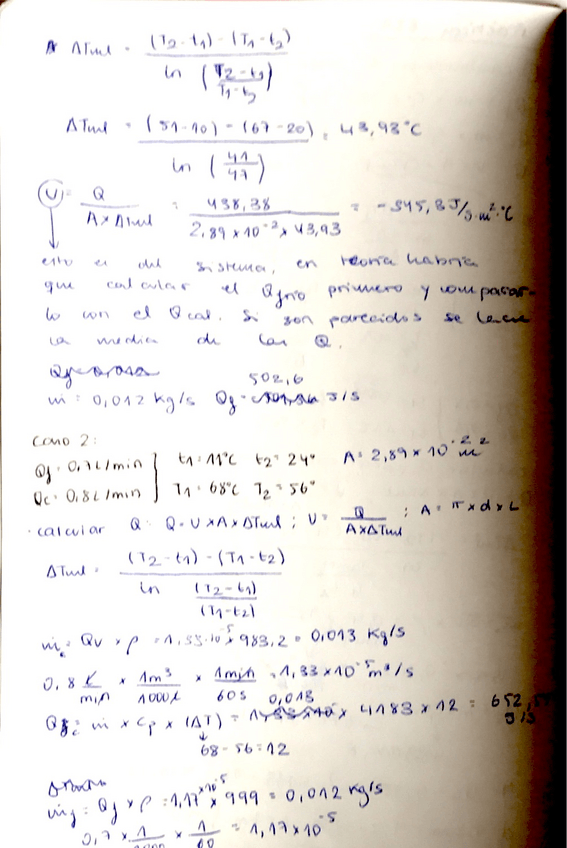 ΔTml = (T2-t1) - (T1-t2)
ln (T2-t1 / T1-t2)
ΔTml = (51-10) - (67-20) = 43,93°C
ln (41/47)
U = Q / A×ΔTml = 438,38 / 2,89×10^-2 × 43,93 = -345,3 J/s·m²·°C
esto es del sistema, en teoría habría
que calcular el Qfrío primero y comparar-
lo con el Qcal. Si son parecidos se hace
la media de las Q.
502,6
ṁ = 0,012 Kg/s Qf = J/s
Caso 2:
Qf = 0,7 L/min } t1 = 11°C t2 = 24° A = 2,89×10^-2 m²
Qc = 0,8 L/min } T1 = 68°C T2 = 56°
· calcular Q: Q = U×A×ΔTml ; U = Q / A×ΔTml ; A = π×d×L
ΔTml = (T2-t1) - (T1-t2)
ln (T2-t1) / (T1-t2)
ṁc = Qv × ρ = 1,33·10^-5 × 983,2 = 0,013 Kg/s
0,8 L/min × 1m³/1000L × 1min/60s = 1,33×10^-5 m³/s
0,013
Qc = ṁ × Cp × (ΔT) = × 4183 × 12 = 652, J/s
68-56=12
ṁf = Qf × ρ = 1,17×10^-5 × 999 = 0,012 Kg/s
0,7 × 1/1000 × 1/60 = 1,17×10^-5